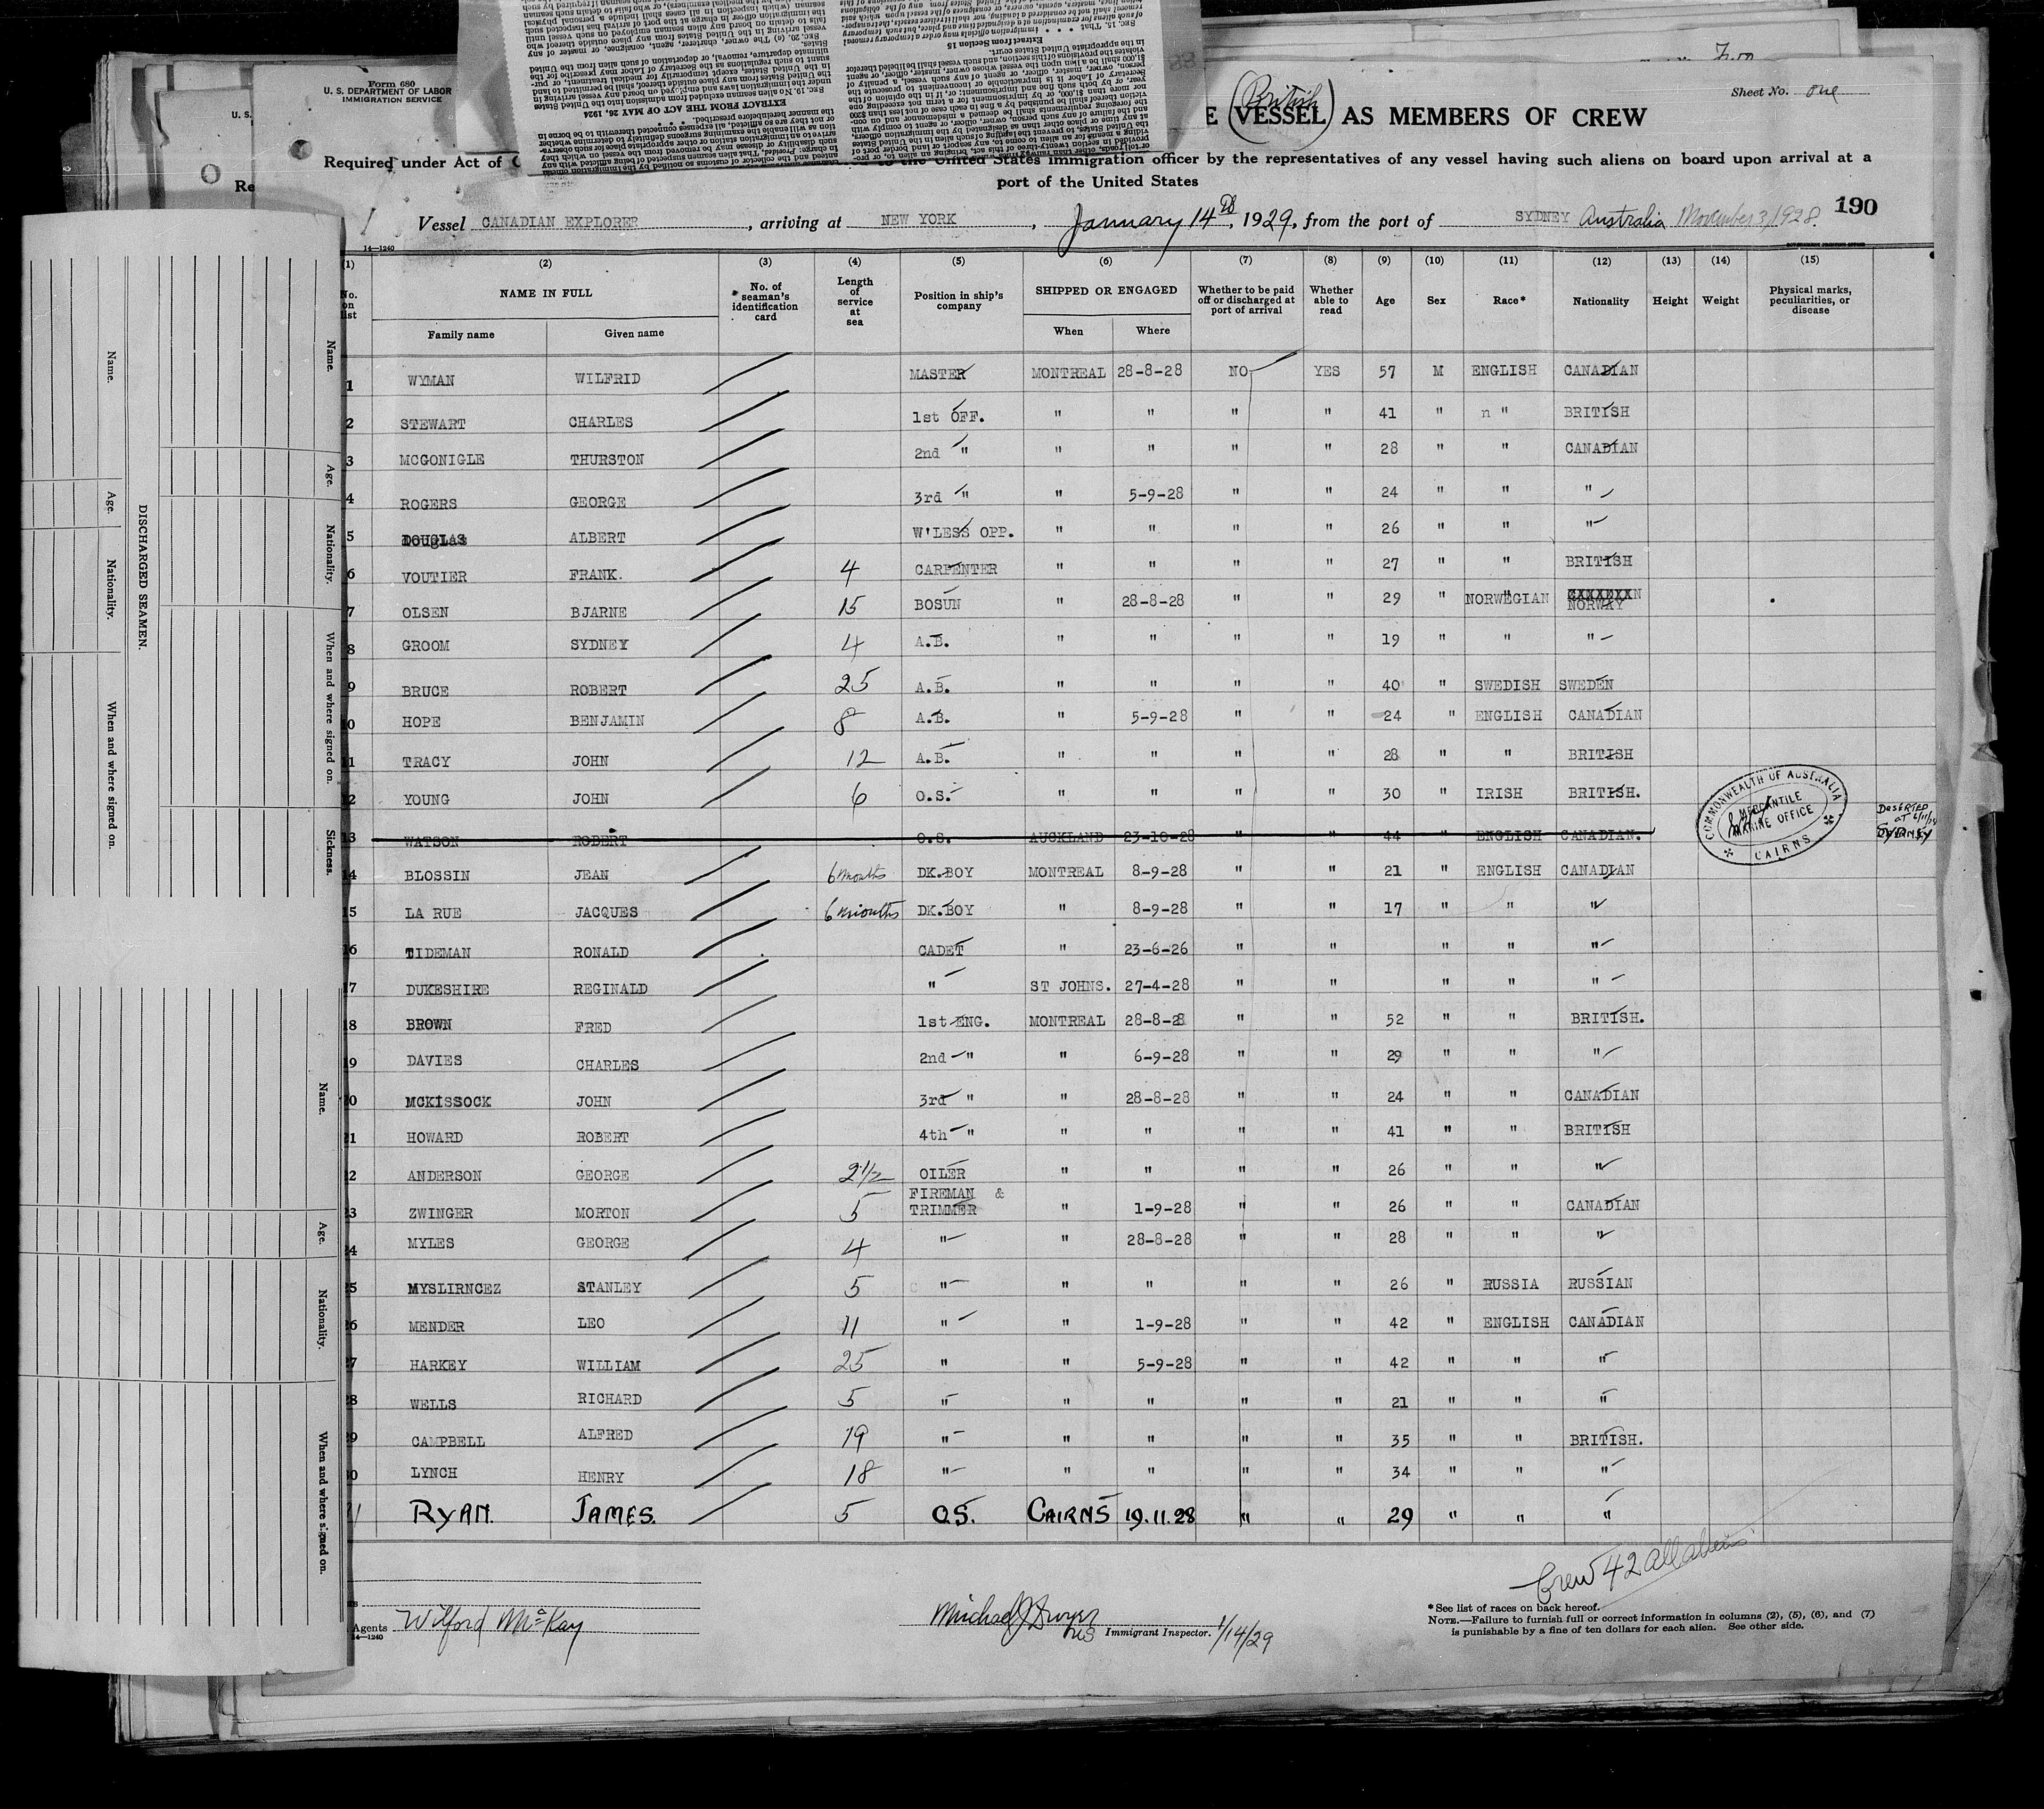 Form 680
U. S. DEPARTMENT OF LABOR
IMMIGRATION SERVICE
Sheet No. one
British
E (VESSEL) AS MEMBERS OF CREW
Required under Act of
United States immigration officer by the representatives of any vessel having such aliens on board upon arrival at a
port of the United States
190
Vessel CANADIAN EXPLORER, arriving at NEW YORK, January 14th, 1929, from the port of SYDNEY Australia November 3, 1928.
14—1240
(1) (2) (3) (4) (5) (6) (7) (8) (9) (10) (11) (12) (13) (14) (15)
No. on list | NAME IN FULL | No. of seaman's identification card | Length of service at sea | Position in ship's company | SHIPPED OR ENGAGED | Whether to be paid off or discharged at port of arrival | Whether able to read | Age | Sex | Race* | Nationality | Height | Weight | Physical marks, peculiarities, or disease
Family name | Given name | When | Where
1 WYMAN WILFRID MASTER MONTREAL 28-8-28 NO YES 57 M ENGLISH CANADIAN
2 STEWART CHARLES 1st OFF. " " " " 41 " n " BRITISH
3 MCGONIGLE THURSTON 2nd " " " " " 28 " " CANADIAN
4 ROGERS GEORGE 3rd " " 5-9-28 " " 24 " " "
5 DOUGLAS ALBERT W'LESS OPP. " " " " 26 " " "
6 VOUTIER FRANK. 4 CARPENTER " " " " 27 " " BRITISH
7 OLSEN BJARNE 15 BOSUN " 28-8-28 " " 29 " NORWEGIAN NORWAY
8 GROOM SYDNEY 4 A.B. " " " " 19 " " "
9 BRUCE ROBERT 25 A.B. " " " " 40 " SWEDISH SWEDEN
10 HOPE BENJAMIN 8 A.B. " 5-9-28 " " 24 " ENGLISH CANADIAN
11 TRACY JOHN 12 A.B. " " " " 28 " " BRITISH
12 YOUNG JOHN 6 O.S. " " " " 30 " IRISH BRITISH.
13 WATSON ROBERT O.S. AUCKLAND 23-10-28 " " 44 " ENGLISH CANADIAN.
COMMONWEALTH OF AUSTRALIA
MERCANTILE
MARINE OFFICE
CAIRNS
DESERTED
AT 6/11/28
SYDNEY
14 BLOSSIN JEAN 6 months DK.BOY MONTREAL 8-9-28 " " 21 " ENGLISH CANADIAN
15 LA RUE JACQUES 6 months DK.BOY " 8-9-28 " " 17 " " "
16 TIDEMAN RONALD CADET " 23-6-26 " " " " "
17 DUKESHIRE REGINALD " ST JOHNS. 27-4-28 " " " " "
18 BROWN FRED 1st ENG. MONTREAL 28-8-28 " " 52 " " BRITISH.
19 DAVIES CHARLES 2nd " " 6-9-28 " " 29 " " "
20 MCKISSOCK JOHN 3rd " " 28-8-28 " " 24 " " CANADIAN
21 HOWARD ROBERT 4th " " " " " 41 " " BRITISH
22 ANDERSON GEORGE 2 1/2 OILER " " " " 26 " " "
23 ZWINGER MORTON 5 FIREMAN & TRIMMER " 1-9-28 " " 26 " " CANADIAN
24 MYLES GEORGE 4 " " 28-8-28 " " 28 " " "
25 MYSLIRNCEZ STANLEY 5 " " " " " 26 " RUSSIA RUSSIAN
26 MENDER LEO 11 " " 1-9-28 " " 42 " ENGLISH CANADIAN
27 HARKEY WILLIAM 25 " " 5-9-28 " " 42 " " "
28 WELLS RICHARD 5 " " " " " 21 " " "
29 CAMPBELL ALFRED 19 " " " " " 35 " " BRITISH.
30 LYNCH HENRY 18 " " " " " 34 " " "
31 RYAN. JAMES. 5 O.S. CAIRNS 19.11.28 " " 29 " " "
Crew 42 all aliens
Agents Wilford McKay
14—1240
Michael J Dwyer
Immigrant Inspector. 1/14/29
*See list of races on back hereof.
NOTE.—Failure to furnish full or correct information in columns (2), (5), (6), and (7)
is punishable by a fine of ten dollars for each alien. See other side.
DISCHARGED SEAMEN.
Name. Age. Nationality. When and where signed on.
Name. Age. Nationality. When and where signed on. Sickness.
Name. Age. Nationality. When and where signed on.
EXTRACT FROM THE ACT OF MAY 26, 1924
Extract from Section 15